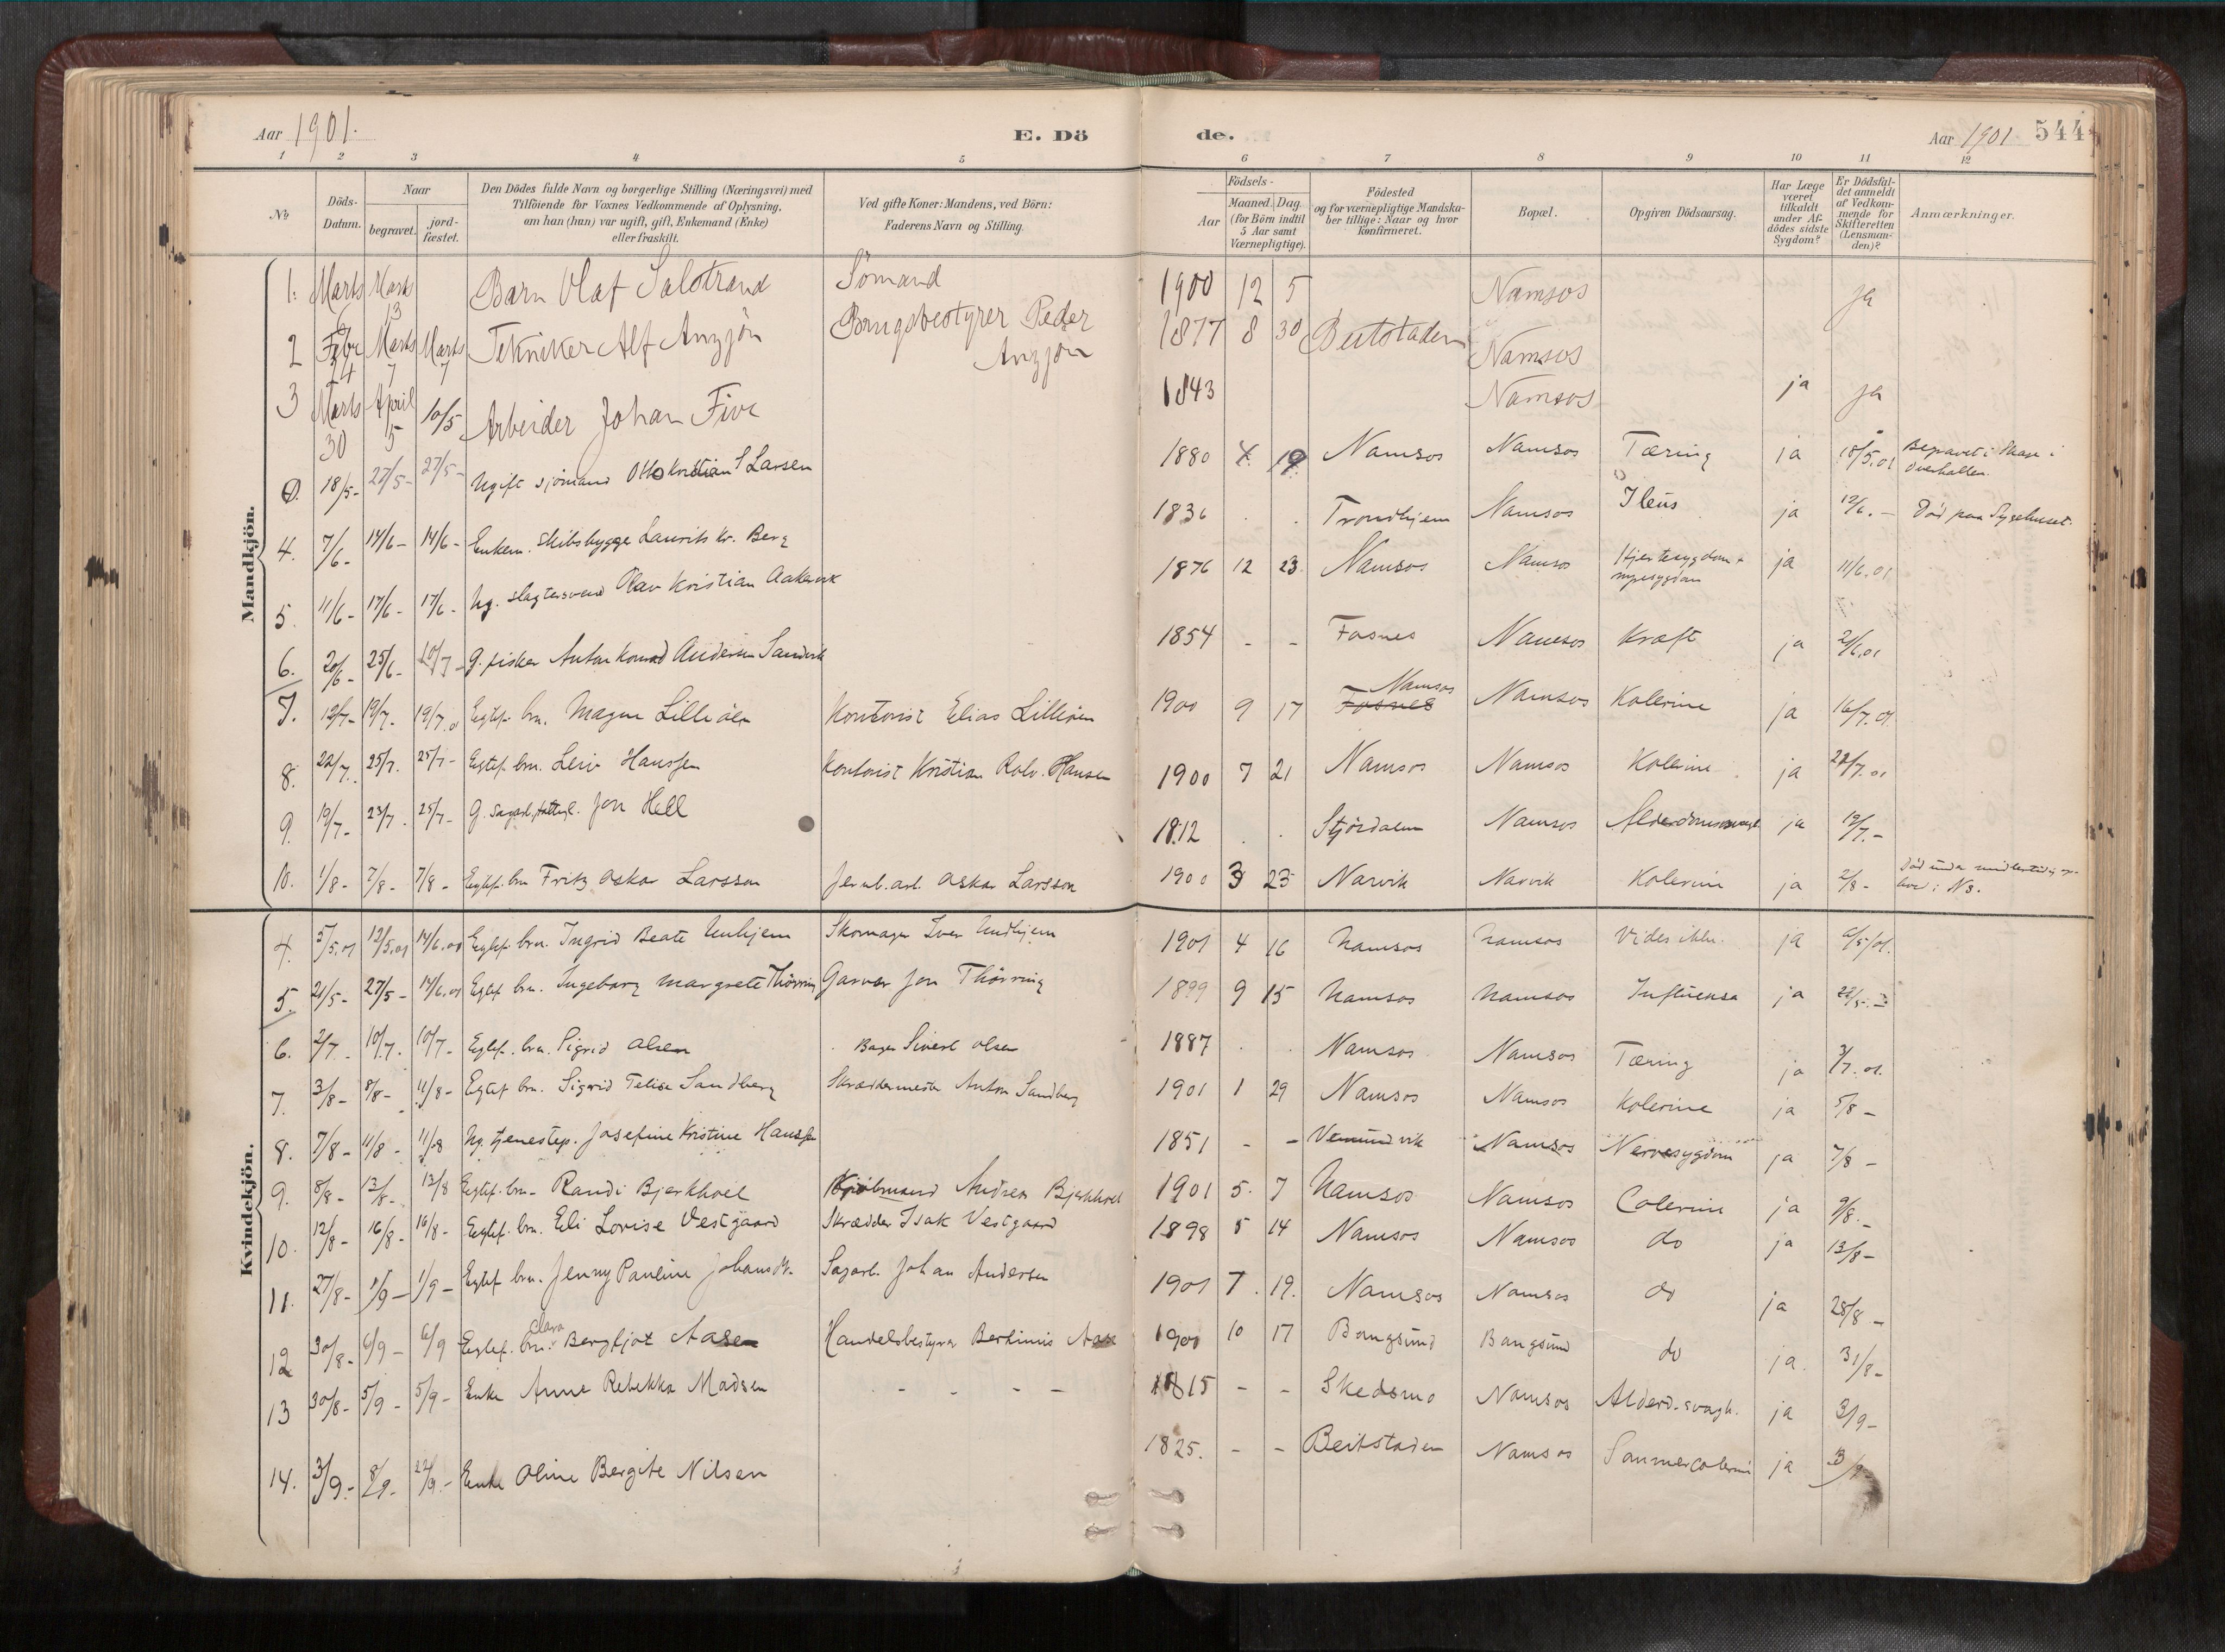 Aar 1901.
E. Dö
de.
Aar 1901
544
1 2 3 4 5 6 7 8 9 10 11 12
№
Döds-Datum.
Naar
begravet.
jord-fæstet.
Den Dödes fulde Navn og borgerlige Stilling (Næringsvei) med
Tilföiende for Voxnes Vedkommende af Oplysning,
om han (hun) var ugift, gift, Enkemand (Enke)
eller fraskilt.
Ved gifte Koner: Mandens, ved Börn:
Faderens Navn og Stilling.
Födsels-
Aar
Maaned. Dag.
(for Börn indtil
5 Aar samt
Værnepligtige).
Födested
og for værnepligtige Mandska-
ber tillige: Naar og hvor
konfirmeret.
Bopæl.
Opgiven Dödsaarsag.
Har Læge
været
tilkaldt
under Af-
dödes sidste
Sygdom?
Er Dödsfal-
det anmeldt
af Vedkom-
mende for
Skifteretten
(Lensman-
den)?
Anmærkninger.
Mandkjön.
1. Marts 6 Marts 13 Barn Olaf Salstrand Sömand 1900 12 5 Namsos ja
2 Febr 24 Marts 7 Marts 7 Tekniker Alf Anzjön Brugsbestyrer Peder Anzjön 1877 8 30 Beitstaden Namsos
3 Marts 30 April 5 10/5 Arbeider Johan Five 1843 Namsos ja ja
18/5- 27/5- 27/5- Ugift sjömand Otto Kristian Larsen 1880 19 Namsos Namsos Tæring ja 18/5.01 Begravet i Overhallen.
4. 7/6- 14/6- 14/6- Enkem. skibsbygger Laurits Kr. Berg 1836 Trondhjem Namsos Ileus ja 12/6.- Död paa Sygehuset.
5. 11/6- 17/6- 17/6- Ug. slagtersvend Olav Kristian Aakervik 1876 12 23. Namsos Namsos Hjertesygdom + nyresygdom ja 11/6.01
6. 20/6- 25/6- 10/7- G. fisker Anton Konrad Andersen Sandvik 1854 - - Fosnes Namsos Kræft ja 21/6.01
7. 12/7- 19/7- 19/7.0 Egtef. brn. Magne Lilleöen Kontorist Elias Lilleöen 1900 9 17 Namsos Fosnes Namsos Kolerine ja 16/7.01.
8. 22/7. 25/7. 25/7- Egtef. brn. Leiv Hanssen Kontorist Kristian Rolv. Hansen 1900 7 21 Namsos Namsos Kolerine ja 22/7.01
9. 19/7- 23/7. 25/7- G. Jon Hell 1812 Stjördalen Namsos Alderdomssvagh. ja 19/7.-
10. 1/8- 7/8- 7/8- Egtef. brn Fritz Oskar Larsson Jernb. arb. Oskar Larsson 1900 3 23 Narvik Narvik Kolerine ja 2/8- Död under midlertidig op-
hold i Ns.
Kvindekjön.
4. 5/5.01 12/5.01 14/6.01 Egtef. brn. Ingrid Beate Undhjem Skomager Iver Undhjem 1901 4 16 Namsos Namsos Vides ikke. ja 6/5/01.
5. 21/5- 27/5- 14/6.01 Egtef brn. Ingeborg Margrete Thörring Garver Jon Thörring 1899 9 15 Namsos Namsos Influensa ja 22/5.-
6. 2/7. 10/7. 10/7- Egtef. brn. Sigrid Olsen Bager Sivert Olsen 1887 Namsos Namsos Tæring ja 3/7.01.
7. 3/8- 8/8- 11/8- Egtef brn. Sigrid Telise Sandberg Skræddermester Anton Sandberg 1901 1 29 Namsos Namsos Kolerine ja 5/8-
8. 7/8- 11/8- 11/8 Ug. tjenestep. Josefine Kristine Hanssen 1851 - - Vemundvik Namsos Nervesygdom ja 7/8-
9. 8/8- 13/8- 13/8 Egtef. brn- Randi Bjerkhoel Kjöbmand Andreas Bjerkhoel 1901 5. 7 Namsos Namsos Colerine ja 9/8-
10. 12/8- 16/8- 16/8- Egtef. brn. Eli Lovise Vestgaard Skrædder Isak Vestgaard 1898 5 14 Namsos Namsos do ja 13/8-
11. 27/8- 1/9- 1/9- Egtef brn. Jenny Pauline Johansdtr. Sagarb. Johan Andersen 1901 7. 19. Namsos Namsos do ja 28/8-
12 30/8- 6/9- 6/9 Egtef. brn. Clara Bergljot Aasen Handelsbestyrer Aasen 1900 10 17 Bangsund Bangsund do ja. 31/8-
13 30/8- 5/9- 5/9- Enke Anne Rebekka Madsen - - - - 1815 - - Skedsmo Namsos Alderd.svagh. ja 3/9-
14. 3/9- 8/9- 22/9.- Enke Oline Bergite Nilsen 1825. - - Beitstaden Namsos Sommercolerine ja 3/9-